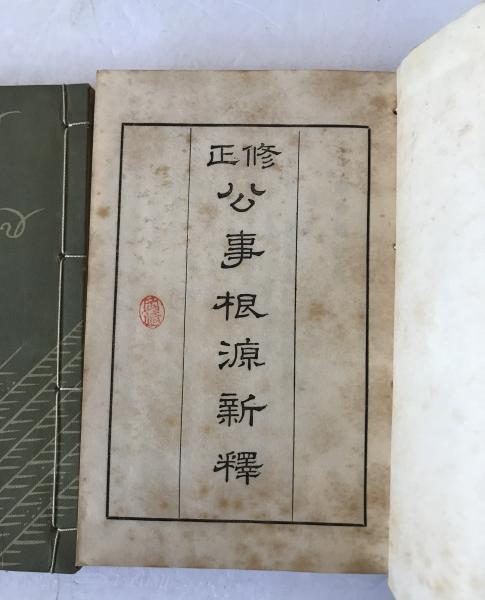 修正
公事根源新釋